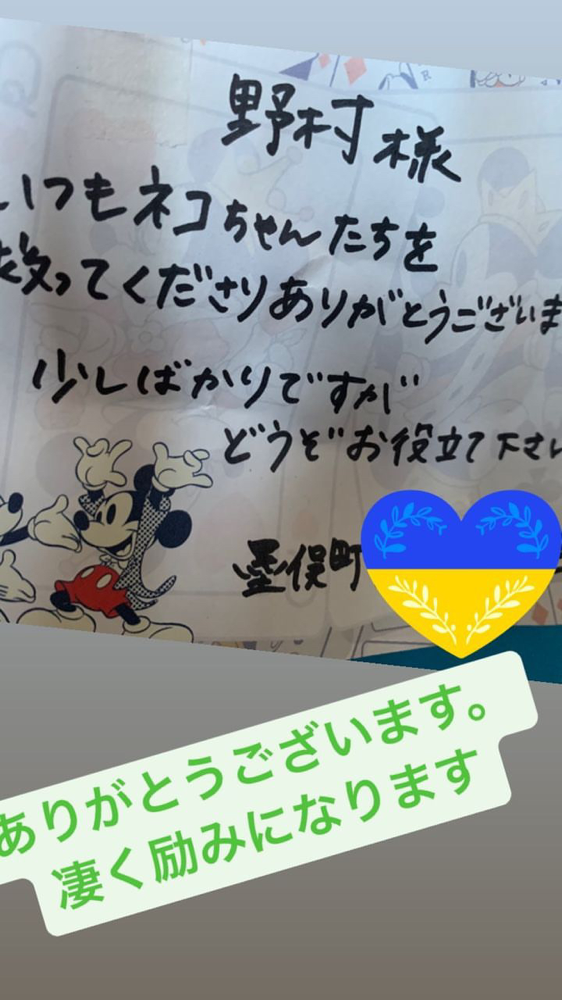 野村様
いつもネコちゃんたちを
救ってくださりありがとうございま
少しばかりですが
どうぞお役立て下さい
墨俣町
ありがとうございます。
凄く励みになります